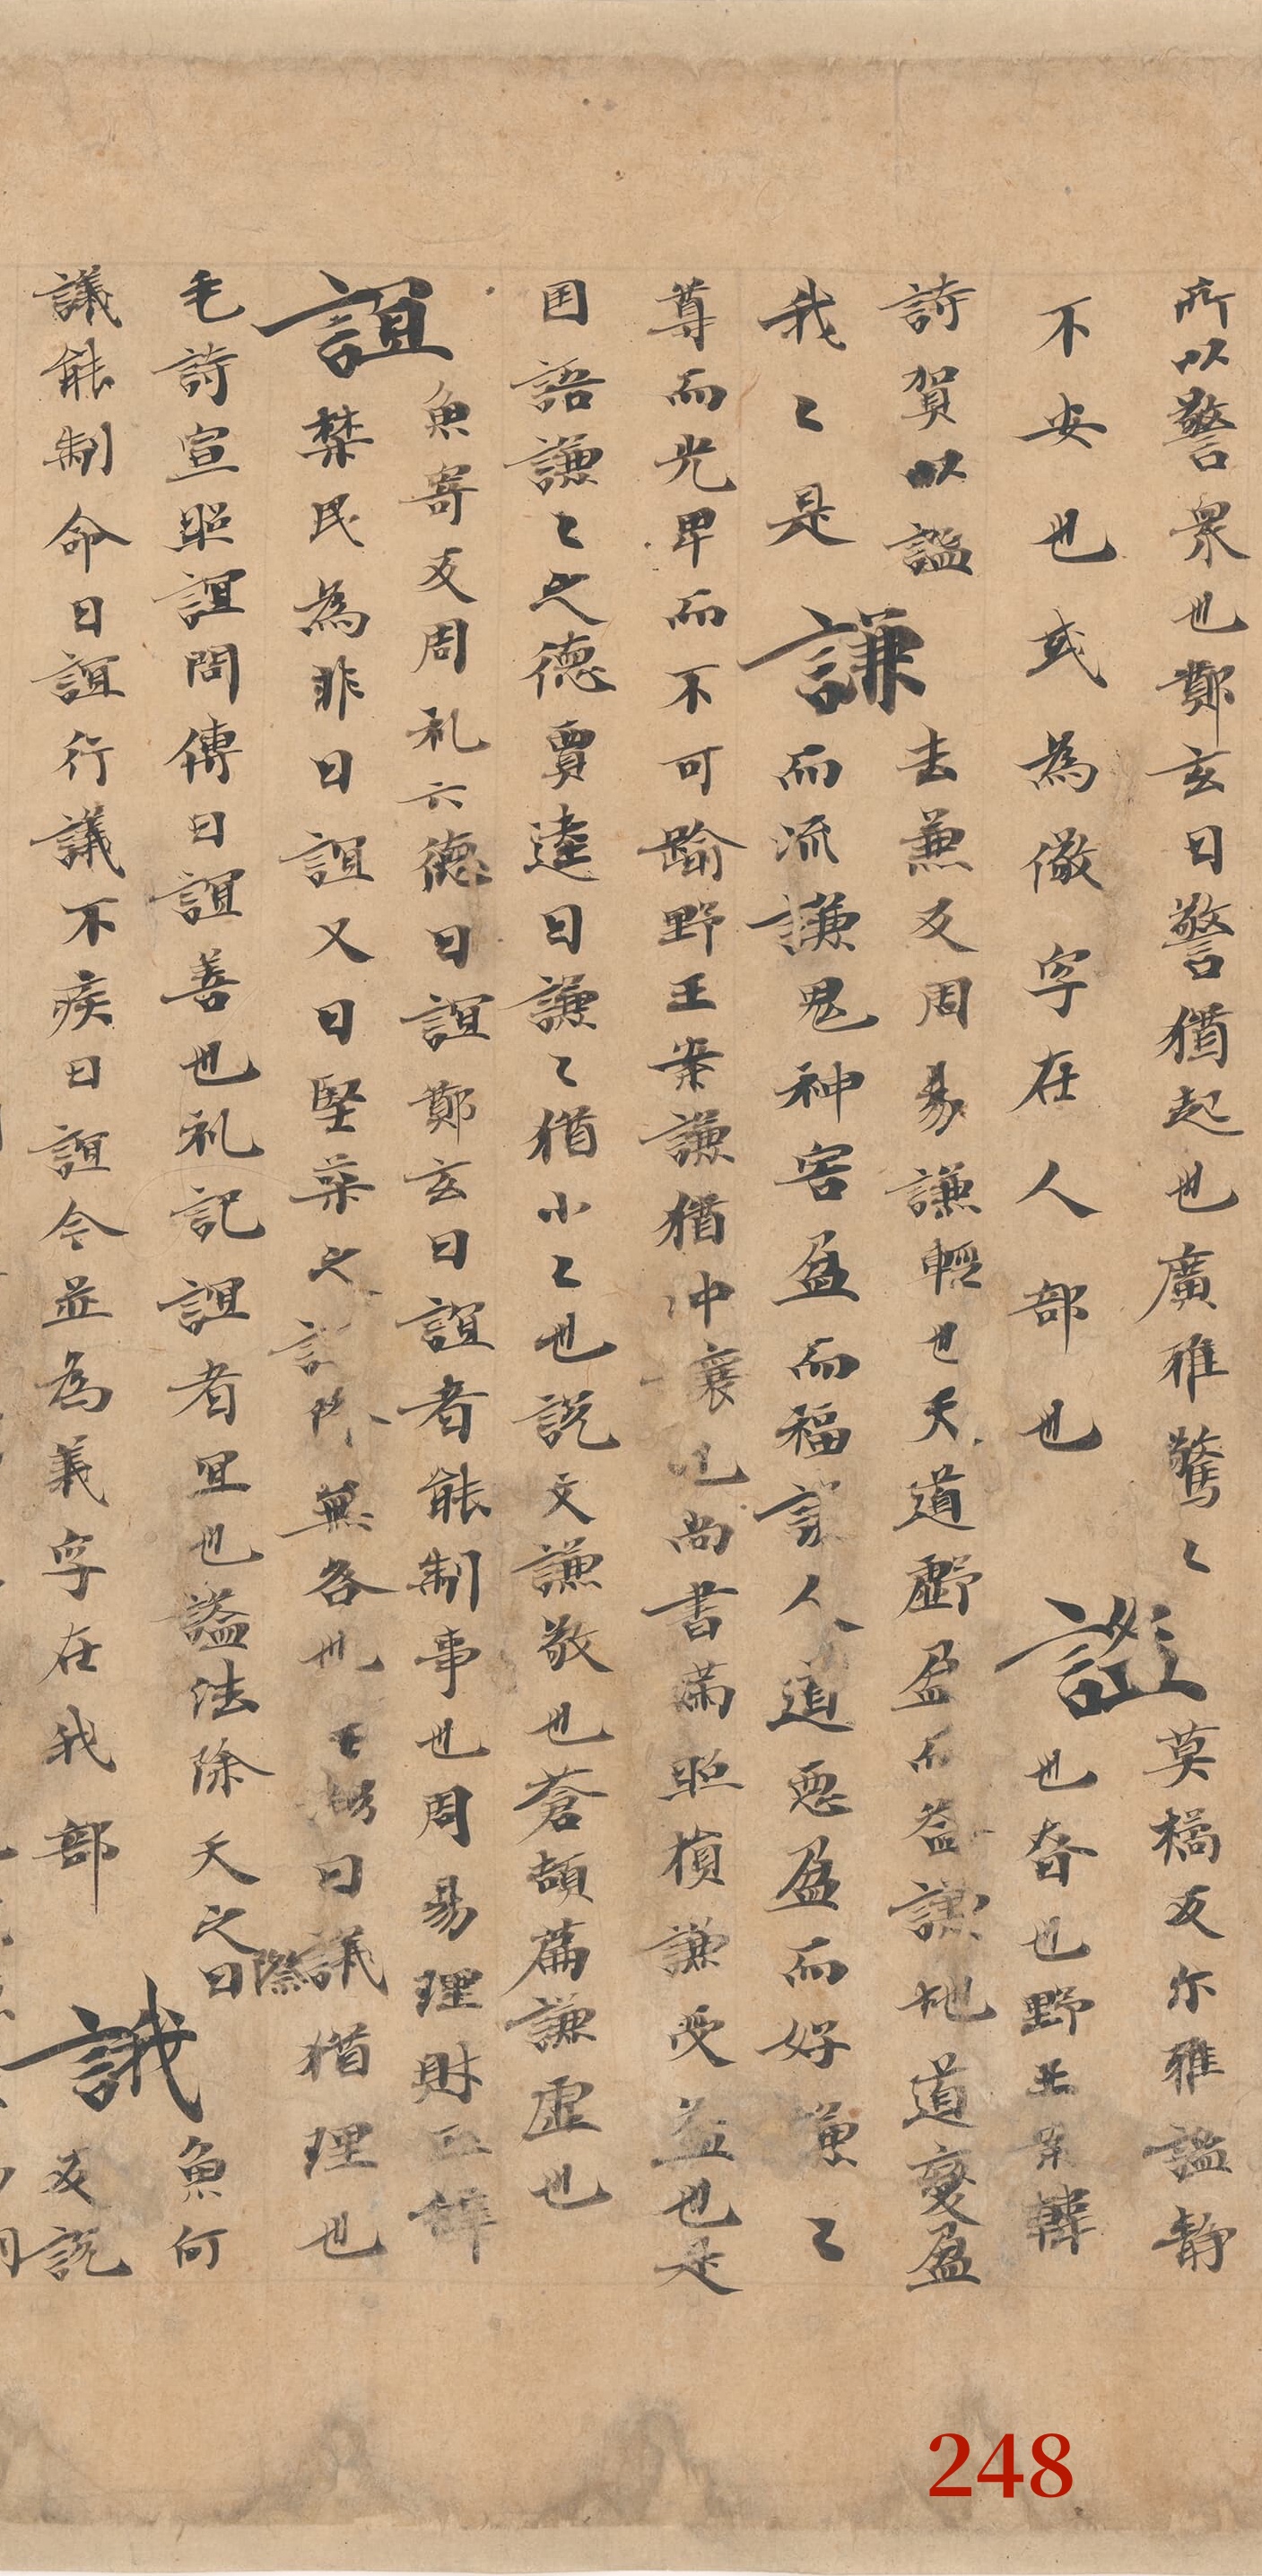 所以警衆也鄭玄曰警猶起也廣雅驚〻
不安也或為儆字在人部也
謐
莫橘反尓雅謐静
也昚也野王案韓
詩賀以謐
我〻是
謙
去兼反周易謙輕也天道虧盈而益謙地道變盈
而流謙鬼神害盈而福謙人道惡盈而好謙〻
尊而光卑而不可踰野王案謙猶冲襄也尚書滿照損謙受益也是
国語謙〻之德賈逵曰謙〻猶小〻也説文謙敬也蒼頡篇謙虚也
誼
魚寄反周礼六德曰誼鄭玄曰誼者能制事也周易理財正辞
禁民為非曰誼又曰堅菜之無咎也王弼曰議猶理也
毛詩宣照誼問傳曰誼善也礼記誼者宜也謚法除天之際曰
議能制命曰誼行議不疾曰誼今並為義字在我部
誐
魚何
反説
248